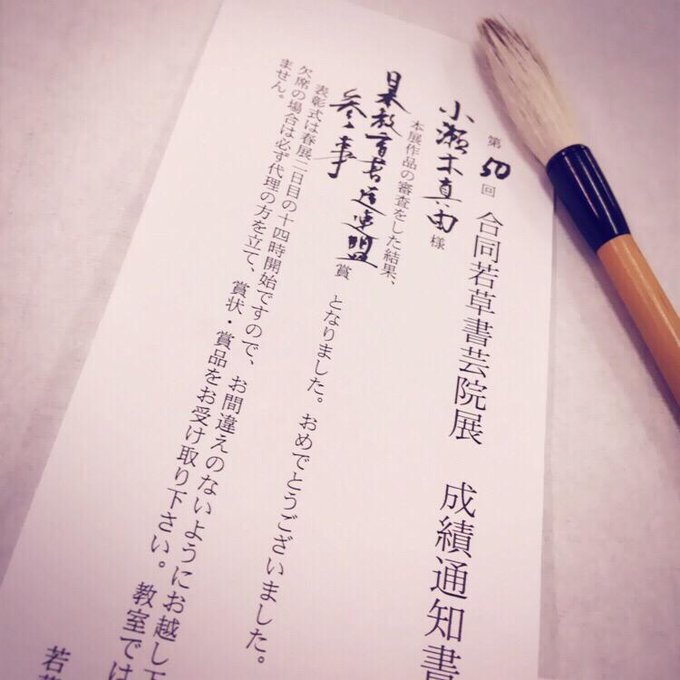 第50回 合同若草書芸院展 成績通知書
小瀬木真由様
本展作品の審査をした結果、
日本教育書道連盟
参事賞 となりました。おめでとうございました。
表彰式は春展二日目の十四時開始ですので、お間違えのないようにお越し下
欠席の場合は必ず代理の方を立て、賞状・賞品をお受け取り下さい。教室では
ません。
若